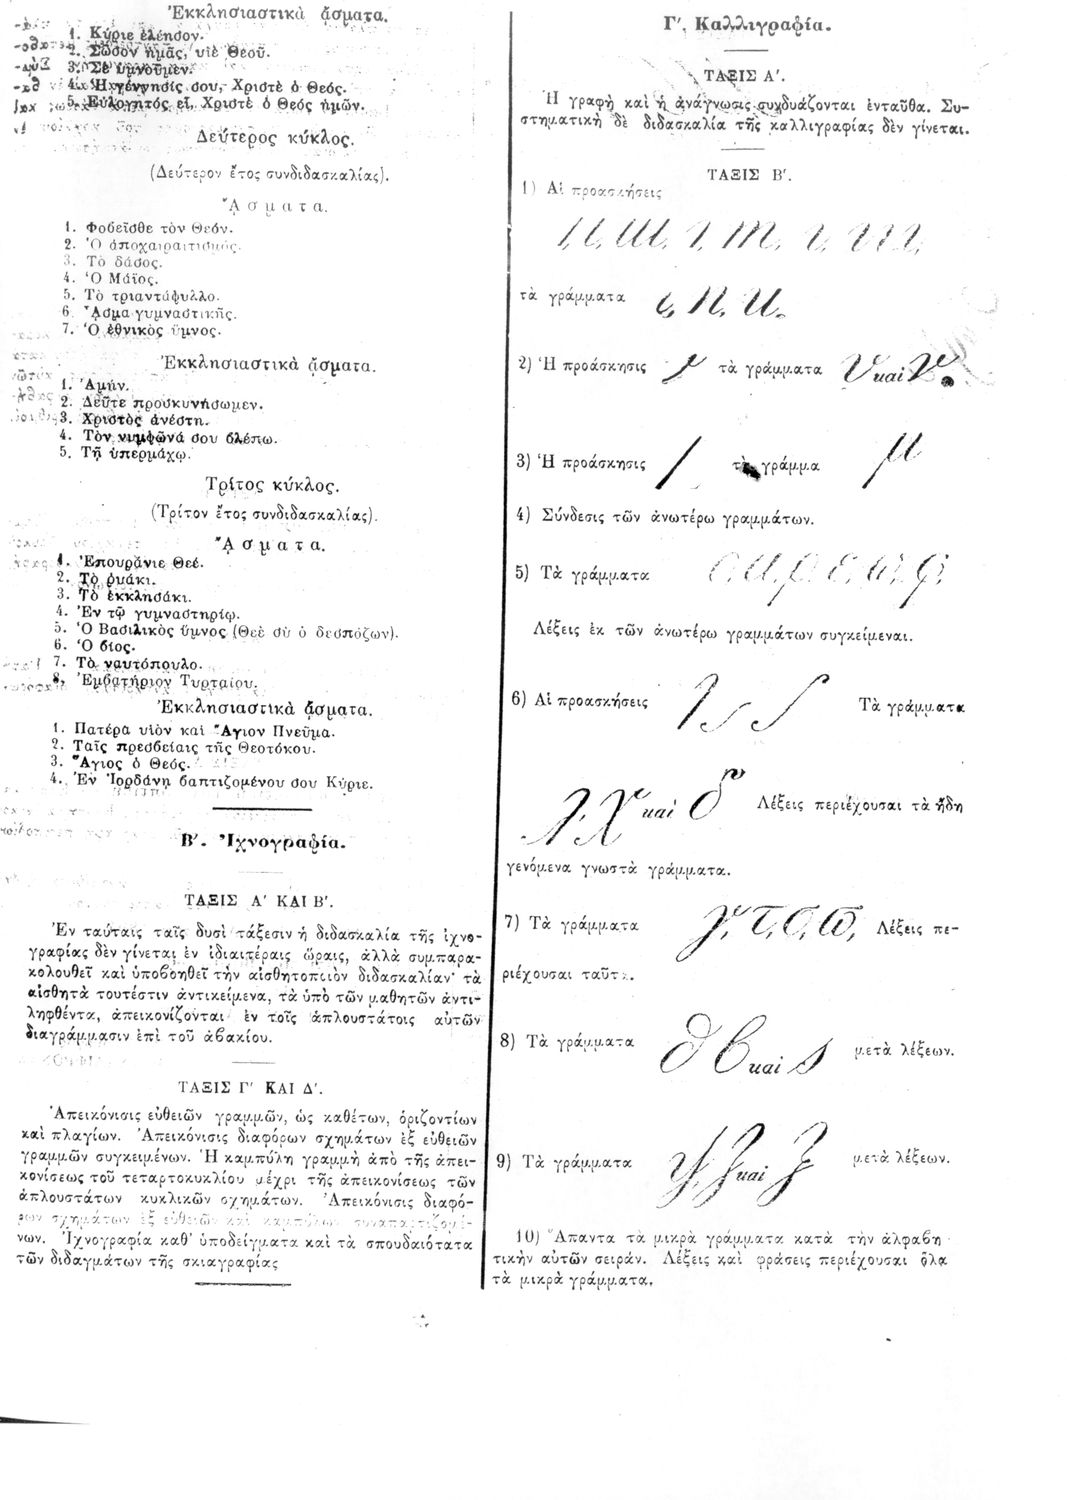 Ἐκκλησιαστικὰ ᾄσματα.
1. Κύριε ἐλέησον.
2. Σῶσον ἡμᾶς, υἱὲ Θεοῦ.
3. Σὲ ὑμνοῦμεν.
4. Ἡ γέννησίς σου, Χριστὲ ὁ Θεός.
5. Εὐλογητὸς εἶ, Χριστὲ ὁ Θεὸς ἡμῶν.
Δεύτερος κύκλος.
(Δεύτερον ἔτος συνδιδασκαλίας).
ᾌσματα.
1. Φοβεῖσθε τὸν Θεόν.
2. Ὁ ἀποχαιρετισμός.
3. Τὸ δάσος.
4. Ὁ Μάϊος.
5. Τὸ τριαντάφυλλο.
6. ᾎσμα γυμναστικῆς.
7. Ὁ ἐθνικὸς ὕμνος.
Ἐκκλησιαστικὰ ᾄσματα.
1. Ἀμήν.
2. Δεῦτε προσκυνήσωμεν.
3. Χριστὸς ἀνέστη.
4. Τὸν νυμφῶνά σου βλέπω.
5. Τῇ ὑπερμάχῳ.
Τρίτος κύκλος.
(Τρίτον ἔτος συνδιδασκαλίας).
ᾌσματα.
1. Ἐπουράνιε Θεέ.
2. Τὸ ρυάκι.
3. Τὸ ἐκκλησάκι.
4. Ἐν τῷ γυμναστηρίῳ.
5. Ὁ Βασιλικὸς ὕμνος (Θεὲ σὺ ὁ δεσπόζων).
6. Ὁ βίος.
7. Τὸ ναυτόπουλο.
8. Ἐμβατήριον Τυρταίου.
Ἐκκλησιαστικὰ ᾄσματα.
1. Πατέρα υἱὸν καὶ Ἅγιον Πνεῦμα.
2. Ταῖς πρεσβείαις τῆς Θεοτόκου.
3. Ἅγιος ὁ Θεός.
4. Ἐν Ἰορδάνῃ βαπτιζομένου σου Κύριε.
Β′. Ἰχνογραφία.
ΤΑΞΙΣ Α′ ΚΑΙ Β′.
Ἐν ταύταις ταῖς δυσὶ τάξεσιν ἡ διδασκαλία τῆς ἰχνο-
γραφίας δὲν γίνεται ἐν ἰδιαιτέραις ὥραις, ἀλλὰ συμπαρα-
κολουθεῖ καὶ ὑποβοηθεῖ τὴν αἰσθητοποιὸν διδασκαλίαν· τὰ
αἰσθητὰ τουτέστιν ἀντικείμενα, τὰ ὑπὸ τῶν μαθητῶν ἀντι-
ληφθέντα, ἀπεικονίζονται ἐν τοῖς ἁπλουστάτοις αὐτῶν
διαγράμμασιν ἐπὶ τοῦ ἀβακίου.
ΤΑΞΙΣ Γ′ ΚΑΙ Δ′.
Ἀπεικόνισις εὐθειῶν γραμμῶν, ὡς καθέτων, ὁριζοντίων
καὶ πλαγίων. Ἀπεικόνισις διαφόρων σχημάτων ἐξ εὐθειῶν
γραμμῶν συγκειμένων. Ἡ καμπύλη γραμμὴ ἀπὸ τῆς ἀπει-
κονίσεως τοῦ τεταρτοκυκλίου μέχρι τῆς ἀπεικονίσεως τῶν
ἁπλουστάτων κυκλικῶν σχημάτων. Ἀπεικόνισις διαφό-
ρων σχημάτων ἐξ εὐθειῶν καὶ καμπύλων συναπαρτιζομέ-
νων. Ἰχνογραφία καθ' ὑποδείγματα καὶ τὰ σπουδαιότατα
τῶν διδαγμάτων τῆς σκιαγραφίας
Γ′. Καλλιγραφία.
ΤΑΞΙΣ Α′.
Ἡ γραφὴ καὶ ἡ ἀνάγνωσις συνδυάζονται ἐνταῦθα. Συ-
στηματικὴ δὲ διδασκαλία τῆς καλλιγραφίας δὲν γίνεται.
ΤΑΞΙΣ Β′.
1) Αἱ προασκήσεις
τὰ γράμματα ι, η, υ.
2) Ἡ προάσκησις τὰ γράμματα υ καὶ ν.
3) Ἡ προάσκησις τὸ γράμμα μ
4) Σύνδεσις τῶν ἀνωτέρω γραμμάτων.
5) Τὰ γράμματα ο, α, ρ, ε, ω, φ,
Λέξεις ἐκ τῶν ἀνωτέρω γραμμάτων συγκείμεναι.
6) Αἱ προασκήσεις Τὰ γράμματα
λ, χ καὶ δ Λέξεις περιέχουσαι τὰ ἤδη
γενόμενα γνωστὰ γράμματα.
7) Τὰ γράμματα γ, τ, σ, ϖ, Λέξεις πε-
ριέχουσαι ταῦτα.
8) Τὰ γράμματα θ β καὶ ς μετὰ λέξεων.
9) Τὰ γράμματα ψ, ζ καὶ ξ μετὰ λέξεων.
10) Ἅπαντα τὰ μικρὰ γράμματα κατὰ τὴν ἀλφαβη-
τικὴν αὐτῶν σειράν. Λέξεις καὶ φράσεις περιέχουσαι ὅλα
τὰ μικρὰ γράμματα.